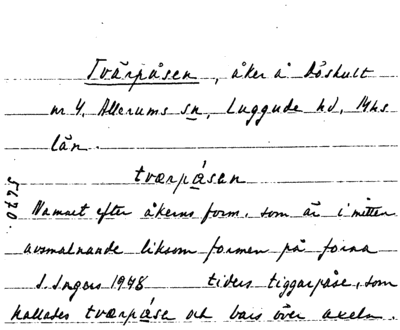 Tvärpåsen, åker å Döshult
nr 4, Allerums sn, Luggude hd, Mhs
län.
tværpåsan
5670.
Namnet efter åkerns form, som är i mitten
avsmalnande liksom formen på forna
S. Ingers 1948 tiders tiggarpåse, som
kallades tværpåse och bars över axeln.